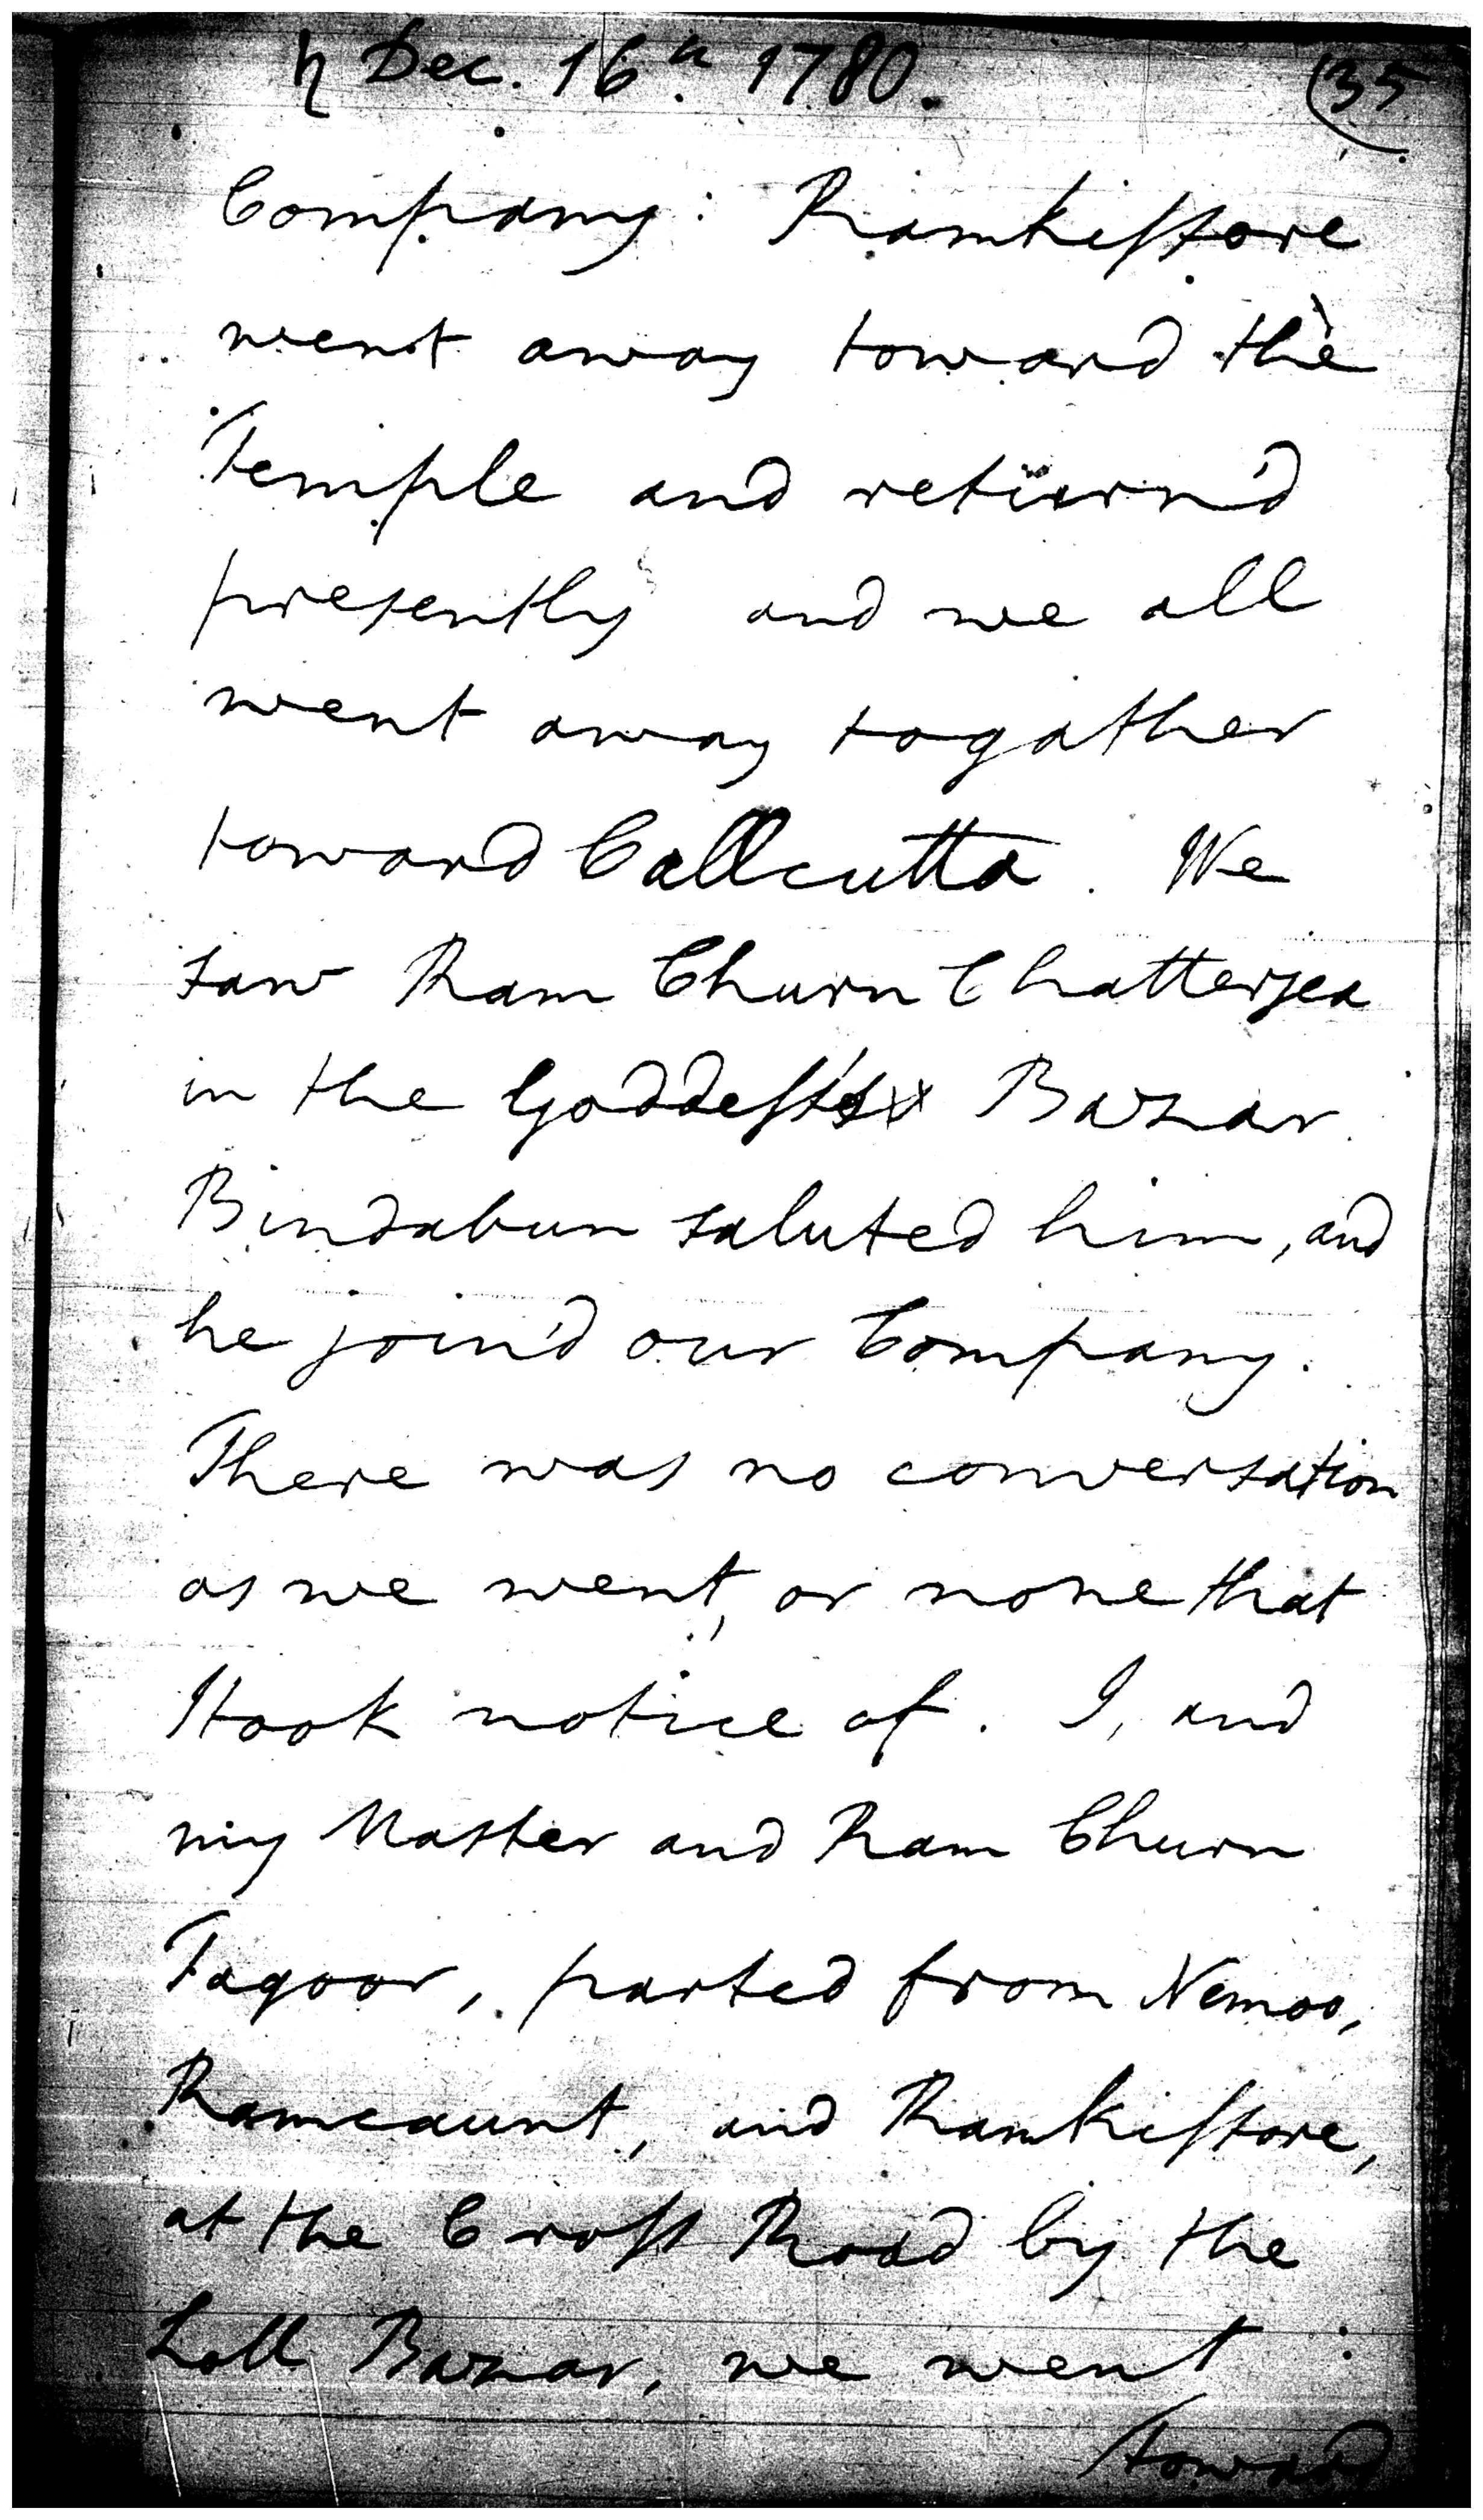 ♄ Dec. 16th. 1780. (35
Company: Ramkissore
went away toward the
Temple and return'd
presently and we all
went away togather
toward Callcutta. We
saw Ram Churn Chatterjea
in the Goddess's Bazar.
Bindabun saluted him, and
he join'd our Company.
There was no conversation
as we went, or none that
I took notice of. I, and
my Master and Ram Churn
Tagoor, parted from Nemoo,
Ramcaunt, and Ramkissore,
at the Cross Road by the
Loll Bazar, we went
toward